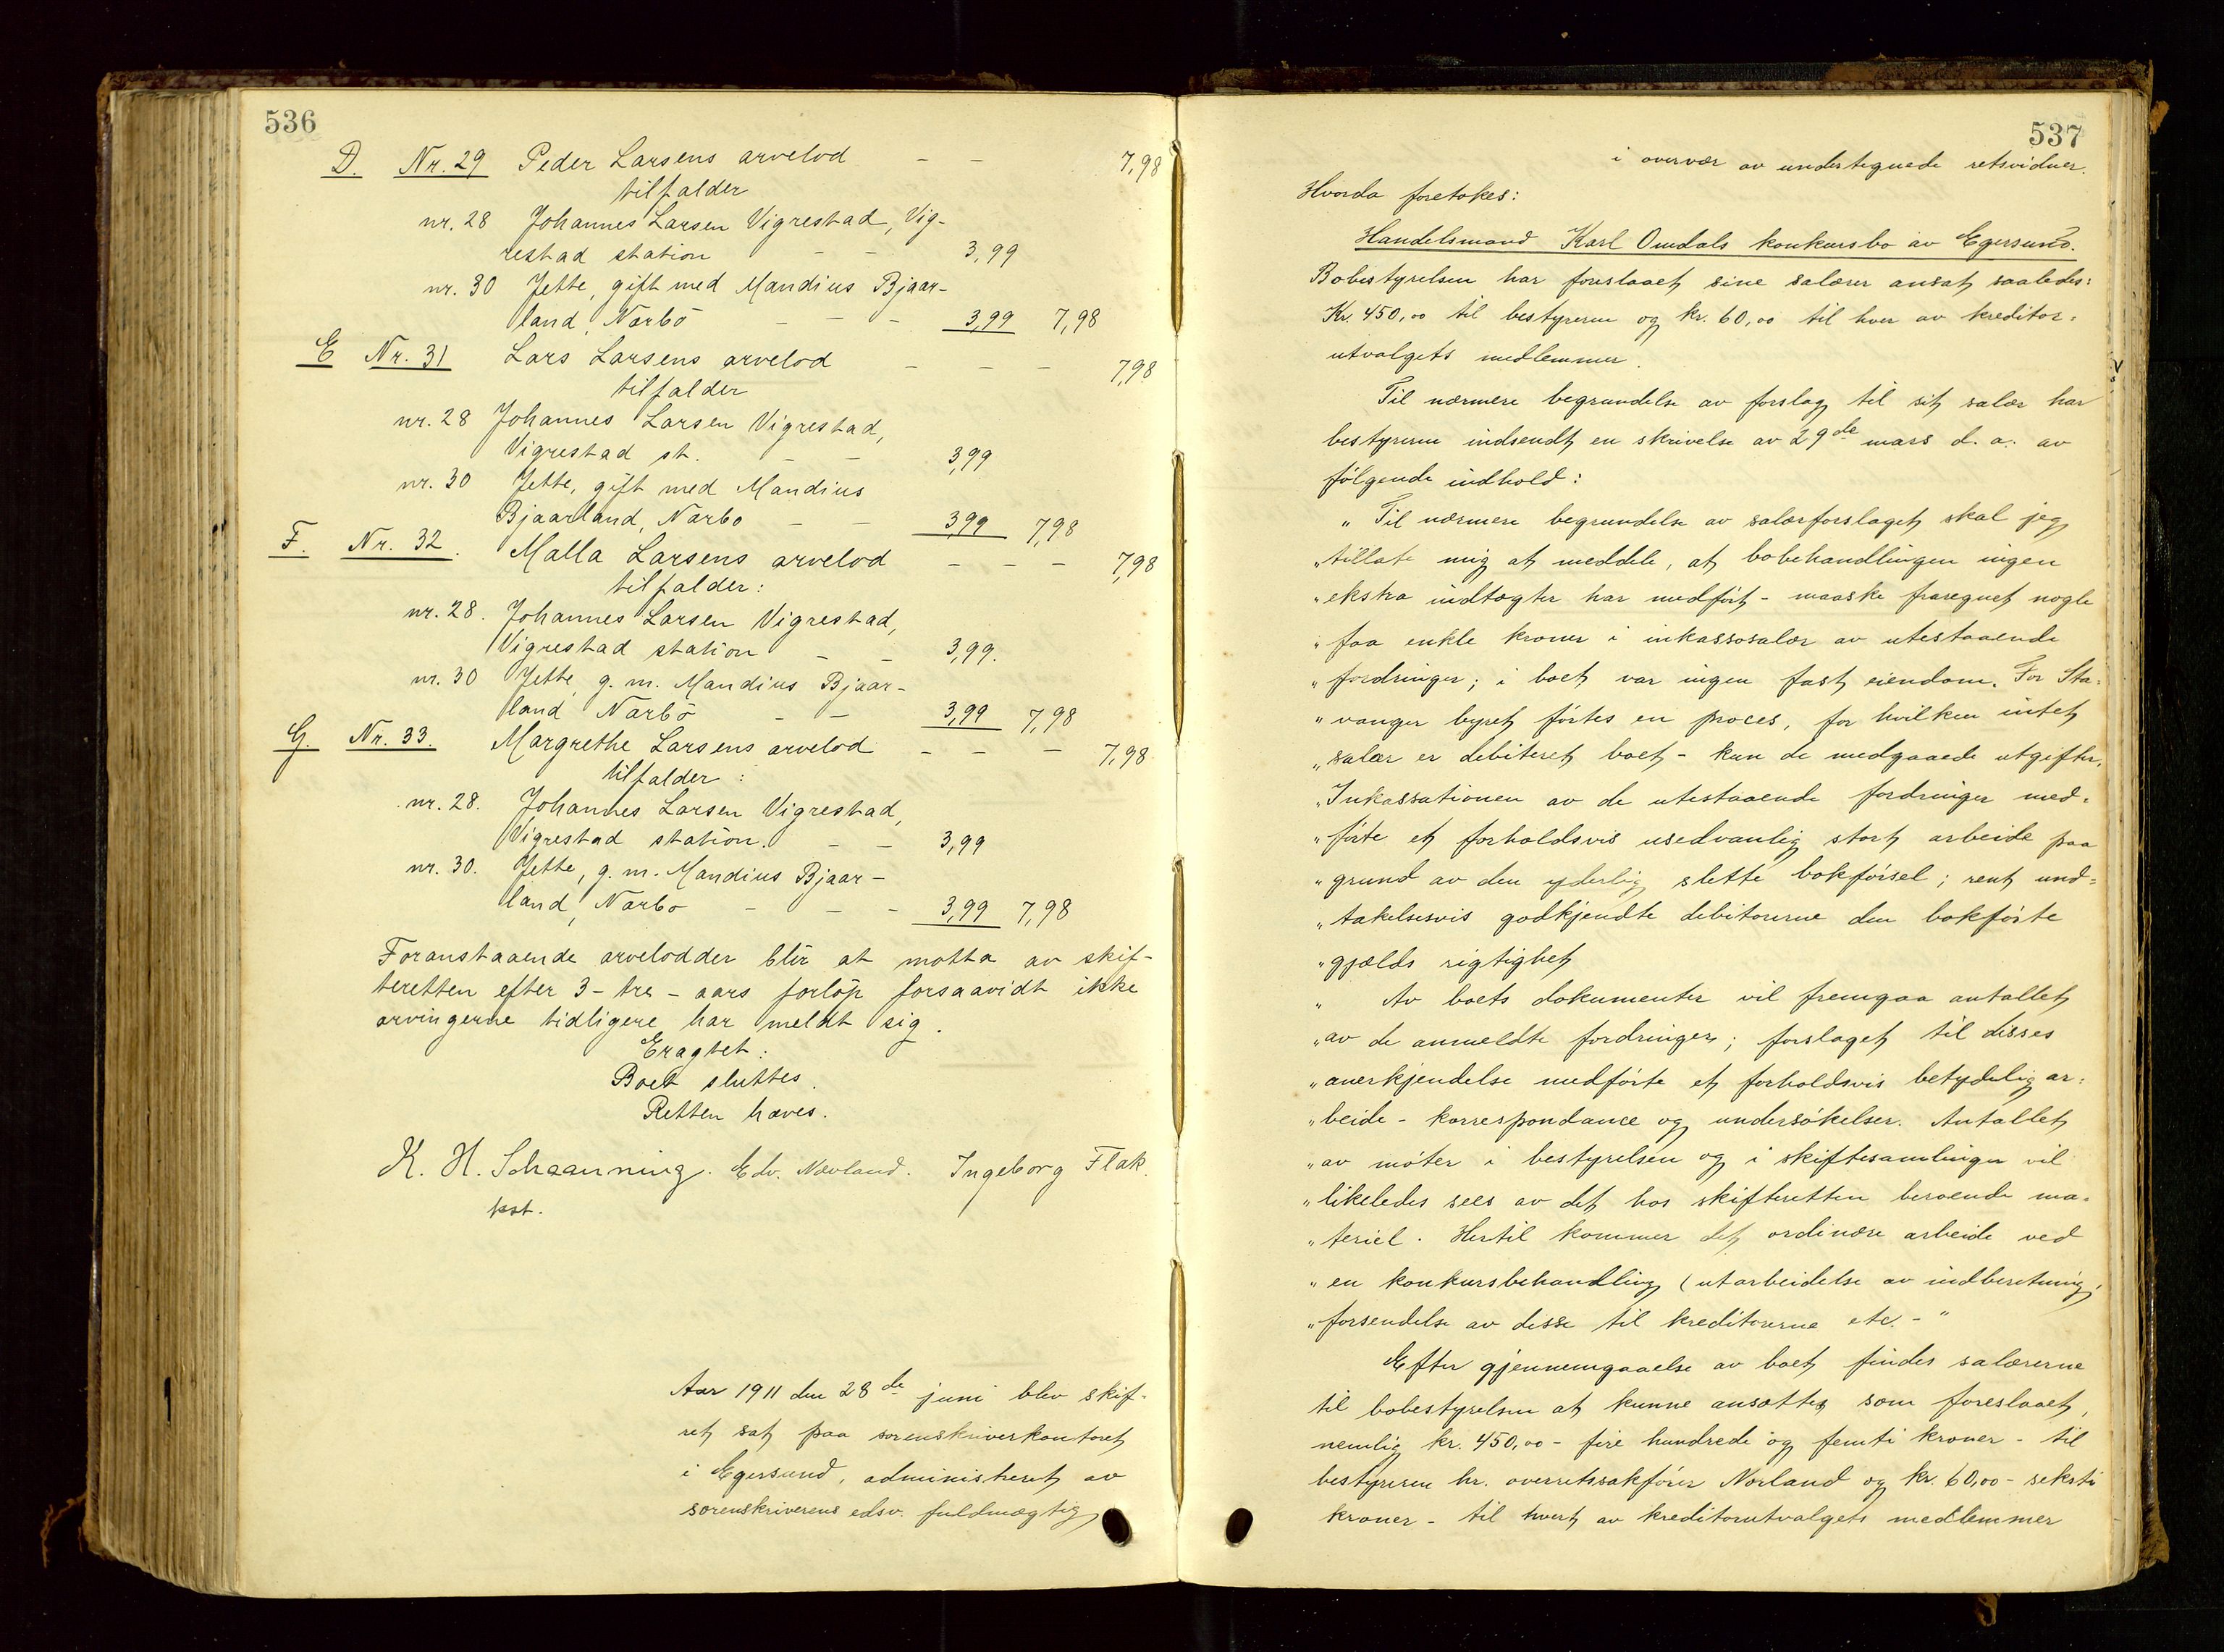 536
D. Nr. 29 Peder Larsens arvelod - - 7,98
tilfalder
nr. 28 Johannes Larsen Vigrestad, Vig-
restad station - - 3,99
nr. 30 Jette, gift med Mandius Bjaar-
land, Nærbö - - - 3,99 7,98
E Nr. 31 Lars Larsens arvelod - - - 7,98
tilfalder
nr. 28 Johannes Larsen Vigrestad,
Vigrestad st. - - 3,99
nr. 30 Jette, gift med Mandius
Bjaarland, Nærbo - - 3,99 7,98
F. Nr. 32. Malla Larsens arvelod - - - 7,98
tilfalder:
nr. 28. Johannes Larsen Vigrestad,
Vigrestad station - - 3,99.
nr. 30 Jette, g. m. Mandius Bjaar-
land Nærbö - - 3,99 7,98
G. Nr. 33. Margrethe Larsens arvelod - - - 7,98
tilfalder:
nr. 28. Johannes Larsen Vigrestad,
Vigrestad station. - - 3,99
nr. 30. Jette, g. m. Mandius Bjaar-
land, Nærbo - - - 3,99 7,98
Foranstaaende arvelodder blir at motta av skif-
teretten efter 3- tre - aars forlöp forsaavidt ikke
arvingerne tidligere har meldt sig.
Eragtet:
Boet sluttes.
Retten hæves.
K. H. Schaanning. Edv. Nevland. Ingeborg Flak.
kst.
Aar 1911 den 28de juni blev skif-
ret sat paa sorenskriverkontoret
i Egersund, administreret av
sorenskriverens edsv. fuldmægtig
537
i overvær av undertegnede retsvidner.
Hvorda foretokes:
Handelsmand Karl Omdals konkursbo av Egersund.
Bobestyrelsen har foreslaaet sine salærer ansat saaledes:
Kr. 450,00 til bestyreren og kr. 60,00 til hver av kreditor-
utvalgets medlemmer.
Til nærmere begrundelse av forslag til sit salær har
bestyreren indsendt en skrivelse av 29de mars d. a. av
følgende indhold:
" Til nærmere begrundelse av salærforslaget skal jeg
"tillate mig at meddele, at bobehandlingen ingen
"ekstra indtægter har medført - maaske fraregnet nogle
"faa enkle kroner i inkassosalær av utestaaende
"fordringer; i boet var ingen fast eiendom. For Sta-
"vanger byret førtes en proces, for hvilken intet
"salær er debiteret boet - kun de medgaaede utgifter.
"Inkassationen av de utestaaende fordringer med-
"førte et forholdsvis usedvanlig stort arbeide paa
"grund av den yderlig slette bokførsel; rent und-
"takelsesvis godkjendte debitorerne den bokførte
"gjælds rigtighet
" Av boets dokumenter vil fremgaa antallet
"av de anmeldte fordringer; forslaget til disses
"anerkjendelse medførte et forholdsvis betydelig ar-
"beide - korrespondance og undersøkelser. Antallet
"av møter i bestyrelsen og i skiftesamlinger vil
"likeledes sees av det hos skifteretten beroende ma-
"teriel. Hertil kommer det ordinære arbeide ved
"en konkursbehandling (utarbeidelse av indberetning,
"forsendelse av disse til kreditorerne etc. - "
Efter gjennemgaaelse av boet findes salærerne
til bobestyrelsen at kunne ansættes som foreslaaet,
nemlig kr. 450,00 - fire hundrede og femti kroner - til
bestyreren hr. overretssakfører Nevland og kr. 60,00 - seksti
kroner - til hvert av kreditorutvalgets medlemmer